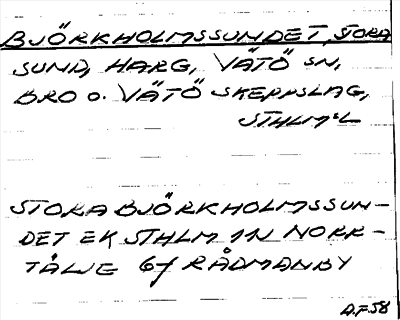 BJÖRKHOLMSSUNDET, STORA
SUND, HARG, VÄTÖ SN,
BRO O. VÄTÖ SKEPPSLAG,
STHLM:S L
STORA BJÖRKHOLMSSUN-
DET EK STHLM 1N NORR-
TÄLJE 6 f RÅDMANBY
A.F.58